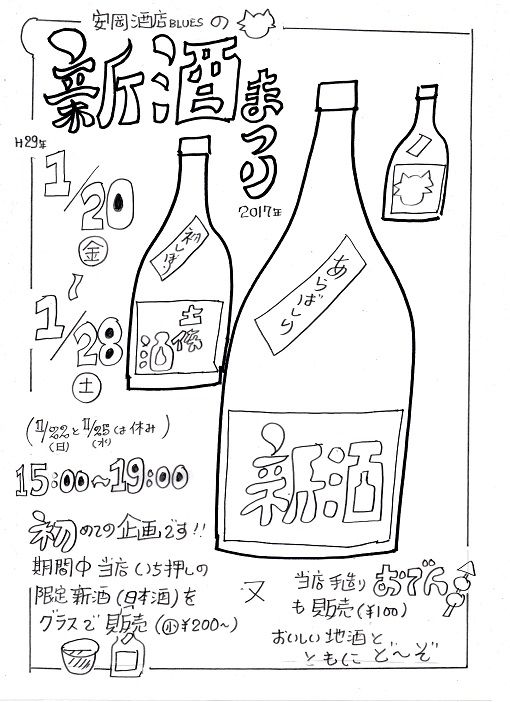 安岡酒店BLUESの
新酒まつり
H29年
2017年
1/20
㊎
1/28
㊏
(1/22と1/25は休み)
(日) (水)
15:00〜19:00
初しぼり
土佐酒
あらばしり
新酒
初めての企画です!!
期間中当店いち押しの
限定新酒(日本酒)を
グラスで販売(㊙¥200〜)
又
当店手造りおでん
も販売(¥100)
おいしい地酒と
ともにど〜ぞ